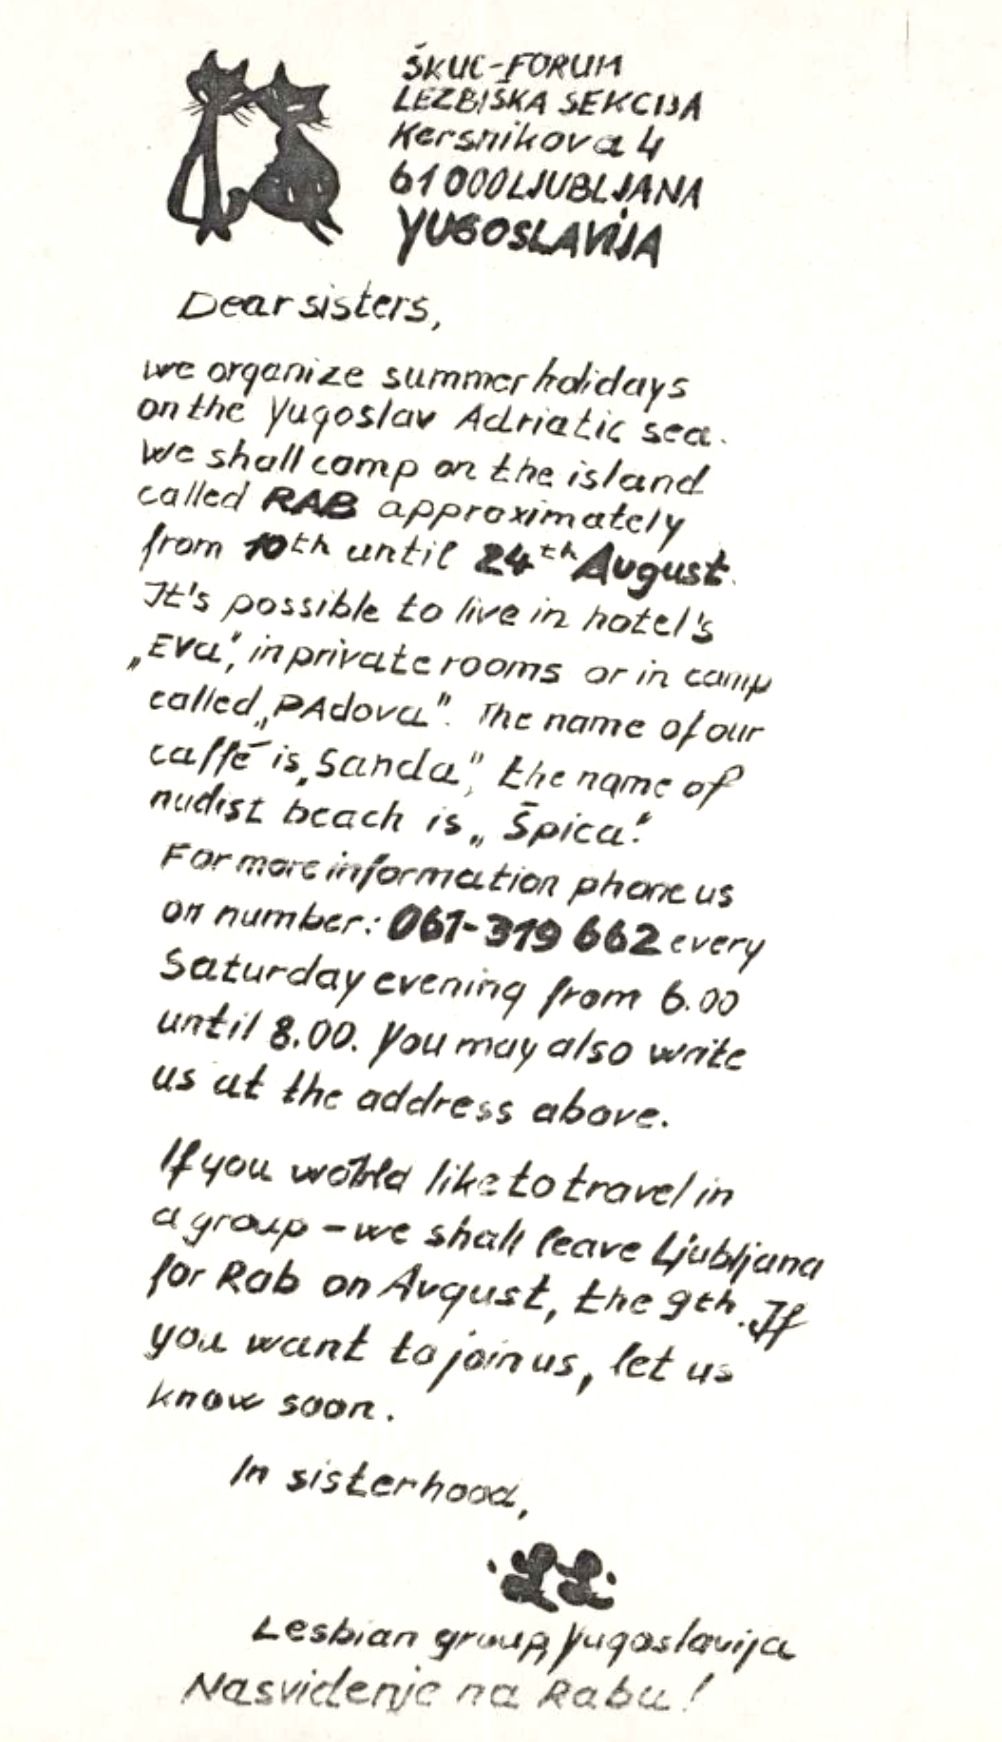 ŠKUC-FORUM
LEZBIŠKA SEKCIJA
Kersnikova 4
61000 LJUBLJANA
YUGOSLAVIJA
Dear sisters,
we organize summer holidays
on the Yugoslav Adriatic sea.
We shall camp on the island
called RAB approximately
from 10th until 24th August.
It's possible to live in hotel's
„Eva", in private rooms or in camp
called „PAdova". The name of our
caffé is „Sanda", the name of
nudist beach is „Špica".
For more information phone us
on number: 061-319 662 every
Saturday evening from 6.00
until 8.00. You may also write
us at the address above.
If you would like to travel in
a group – we shall leave Ljubljana
for Rab on Avgust, the 9th. If
you want to join us, let us
know soon.
In sisterhood,
LL
Lesbian group, Yugoslavija
Nasvidenje na Rabu!